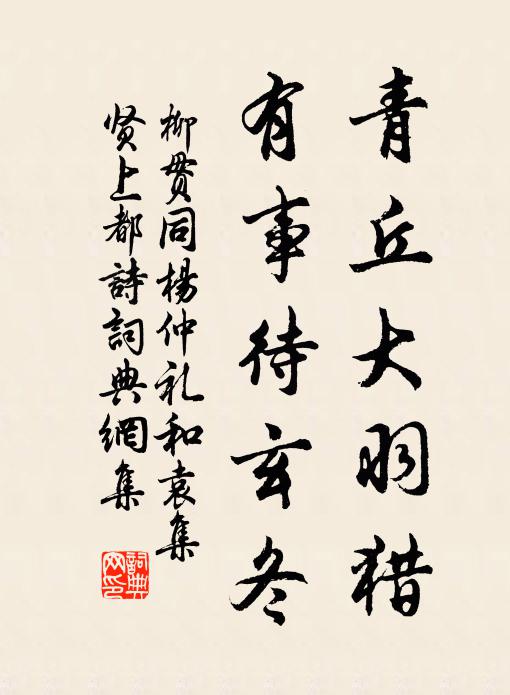 青丘大羽猎
有事待玄冬
柳贯同楊仲礼和袁集
贤上都詩詞典網集
詞典网印